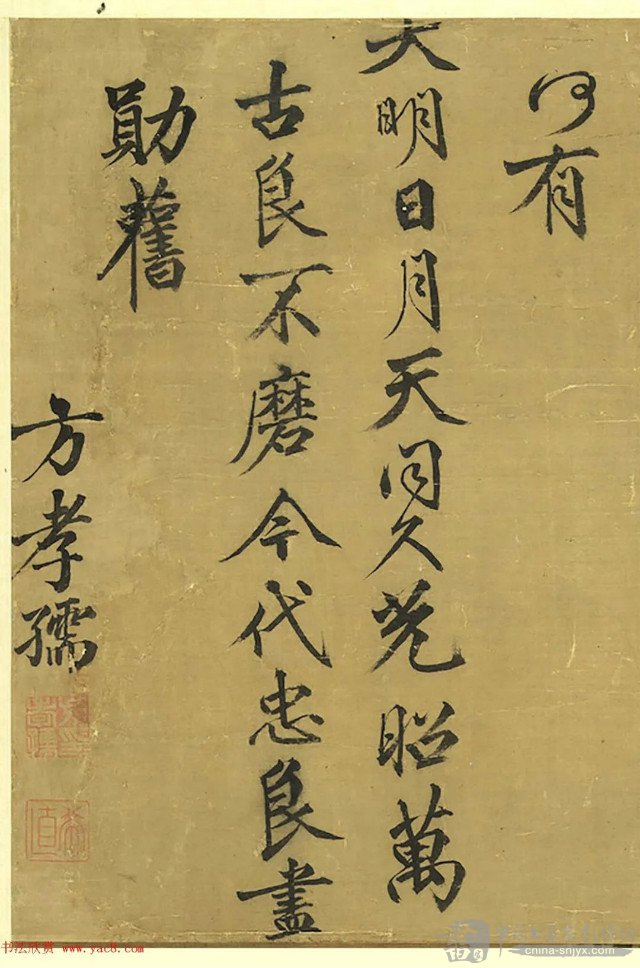 何有
大明日月天同久光昭萬
古良不磨今代忠良盡
勛舊
方孝孺
书法欣赏 www.yac8.com
china-shjyx.com